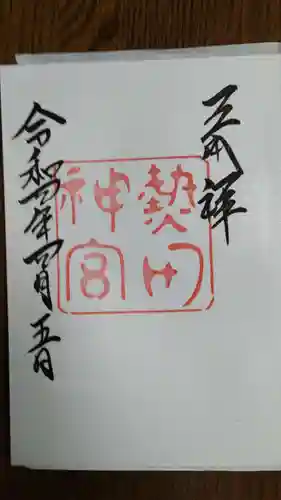 祥
熱田
神宮
令和四年四月五日